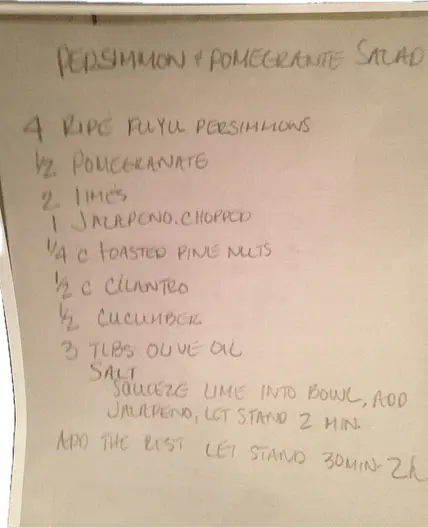 PERSIMMON + POMEGRANTE SALAD
4 RIPE FUYU PERSIMMONS
1/2 POMEGRANATE
2 LIMES
1 JALAPENO. CHOPPED
1/4 C TOASTED PINE NUTS
1/2 C CILANTRO
1/2 CUCUMBER
3 TLBS OLIVE OIL
SALT
SQUEEZE LIME INTO BOWL, ADD
JALAPENO, LET STAND 2 MIN.
ADD THE REST LET STAND 30MIN-2h